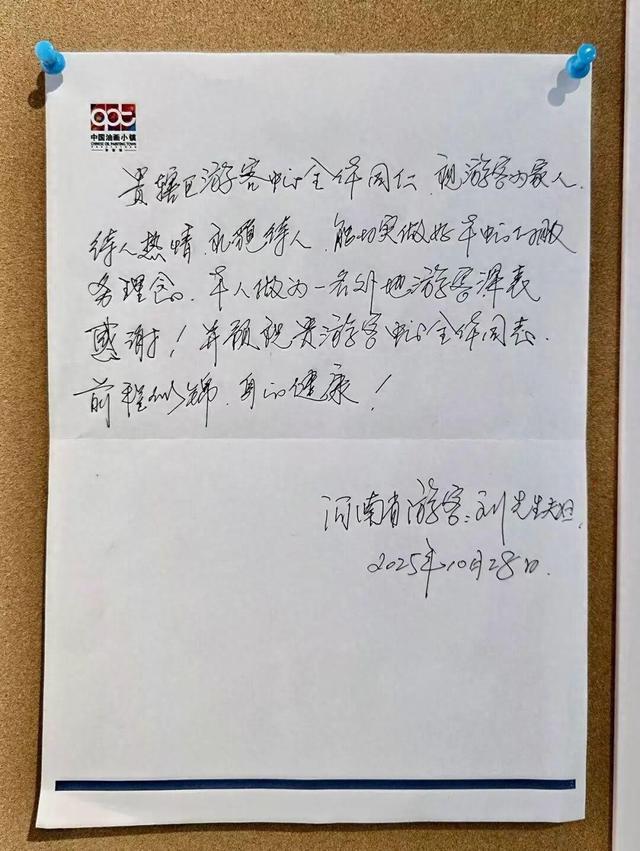 opt
中国油画小镇
CHINESE OIL PAINTING TOWN
贵辖区游客中心全体同仁,视游客为家人,
待人热情,礼貌待人,能切实做好本中心的服
务理念。本人做为一名外地游客深表
感谢!并预祝贵游客中心全体同志,
前程似锦,身心健康!
河南省游客:刘先生夫妇,
2025年10月28日.